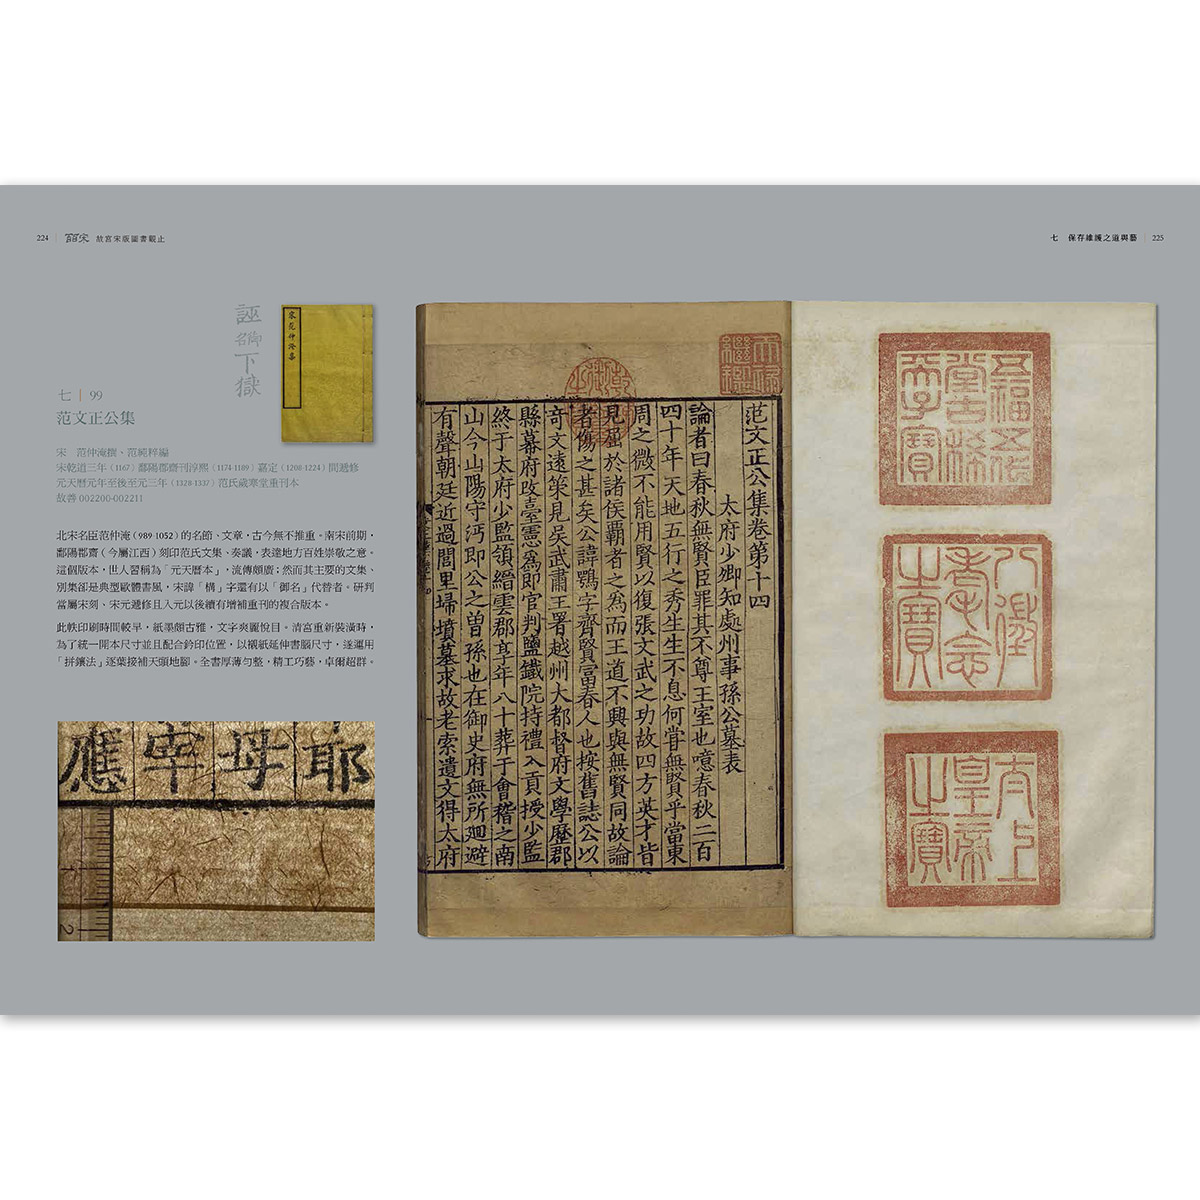 224 皕宋 故宮宋版圖書觀止
七 保存維護之道與藝 225
誣
御名
下獄
宋范仲淹集
七 99
范文正公集
宋 范仲淹撰、范純粹編
宋乾道三年(1167)鄱陽郡齋刊淳熙(1174-1189)嘉定(1208-1224)間遞修
元天曆元年至後至元三年(1328-1337)范氏歲寒堂重刊本
故善 002200-002211
北宋名臣范仲淹(989 1052)的名節、文章,古今無不推重。南宋前期,
鄱陽郡齋(今屬江西)刻印范氏文集、奏議,表達地方百姓崇敬之意。
這個版本,世人習稱為「元天曆本」,流傳頗廣;然而其主要的文集、
別集卻是典型歐體書風,宋諱「構」字還有以「御名」代替者。研判
當屬宋刻、宋元遞修且入元以後續有增補重刊的複合版本。
此帙印刷時間較早,紙墨頗古雅,文字爽麗悅目。清宮重新裝潢時,
為了統一開本尺寸並且配合鈐印位置,以襯紙延伸書腦尺寸,遂運用
「拼鑲法」逐葉接補天頭地腳。全書厚薄勻整,精工巧藝,卓爾超群。
耶
母
宰
應
1
2
五福五代
堂古稀
天子寶
八徵
耄念
之寶
太上
皇帝
之寶
天祿
繼鑑
乾隆御覽之寶
范文正公集卷第十四
太府少卿知處州事孫公墓表
論者曰春秋無賢臣罪其不尊王室也噫春秋二百
四十年天地五行之秀生生不息何甞無賢乎當東
周之微不能用賢以復張文武之功故四方英才皆
見屈於諸侯霸者之為而王道不興與無賢同故論
者傷之甚矣公諱鶚字齊賢富春人也按舊誌公以
奇文遠策見吳武肅王署越州大都督府文學歷郡
縣幕府改臺憲為即官判鹽鐵院持禮入貢授少監
終于太府少監領縉雲郡享年八十葬于會稽之南
山今山陽守沔即公之曾孫也在御史府無所廻避
有聲朝廷近過閭里埽墳墓求故老索遺文得太府